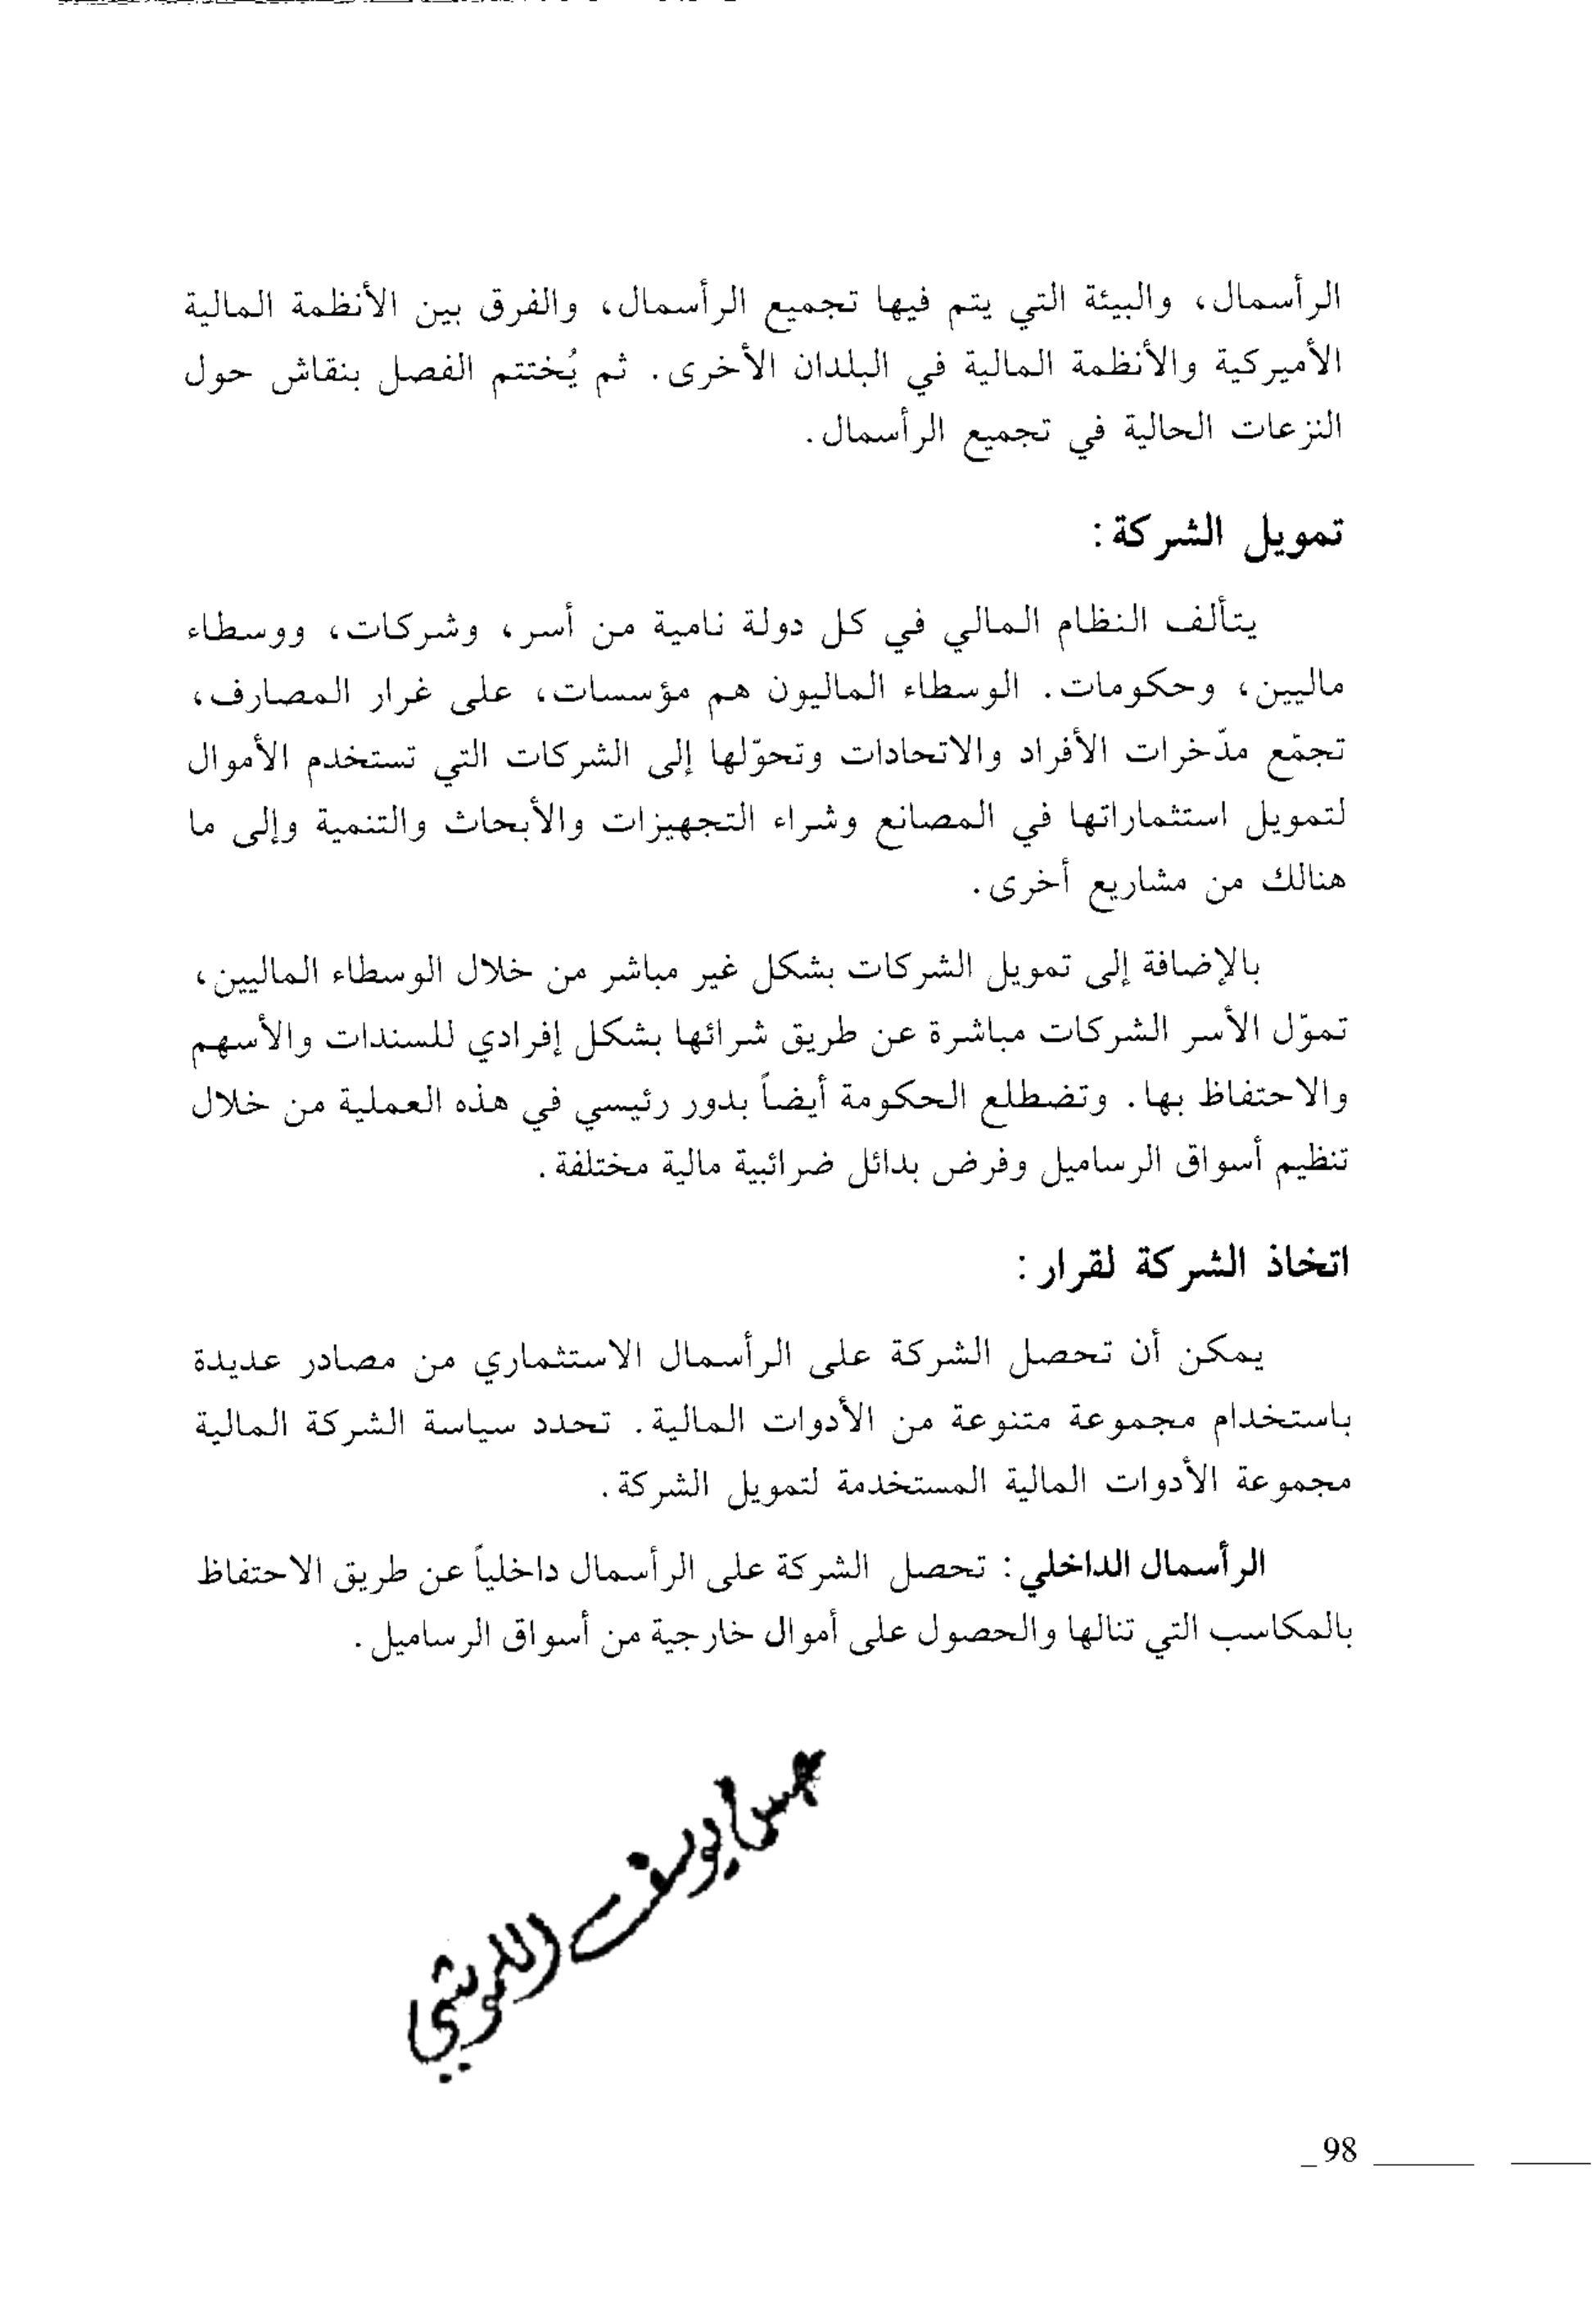 الرأسمال، والبيئة التي يتم فيها تجميع الرأسمال، والفرق بين الأنظمة المالية
الأميركية والأنظمة المالية في البلدان الأخرى. ثم يُختتم الفصل بنقاش حول
النزعات الحالية في تجميع الرأسمال.
تمويل الشركة:
يتألف النظام المالي في كل دولة نامية من أسر، وشركات، ووسطاء
ماليين، وحكومات. الوسطاء الماليون هم مؤسسات، على غرار المصارف،
تجمّع مدّخرات الأفراد والاتحادات وتحوّلها إلى الشركات التي تستخدم الأموال
لتمويل استثماراتها في المصانع وشراء التجهيزات والأبحاث والتنمية وإلى ما
هنالك من مشاريع أخرى.
بالإضافة إلى تمويل الشركات بشكل غير مباشر من خلال الوسطاء الماليين،
تموّل الأسر الشركات مباشرة عن طريق شرائها بشكل إفرادي للسندات والأسهم
والاحتفاظ بها. وتضطلع الحكومة أيضاً بدور رئيسي في هذه العملية من خلال
تنظيم أسواق الرساميل وفرض بدائل ضرائبية مالية مختلفة.
اتخاذ الشركة لقرار:
يمكن أن تحصل الشركة على الرأسمال الاستثماري من مصادر عديدة
باستخدام مجموعة متنوعة من الأدوات المالية. تحدد سياسة الشركة المالية
مجموعة الأدوات المالية المستخدمة لتمويل الشركة.
الرأسمال الداخلي: تحصل الشركة على الرأسمال داخلياً عن طريق الاحتفاظ
بالمكاسب التي تنالها والحصول على أموال خارجية من أسواق الرساميل.
يوسف
98